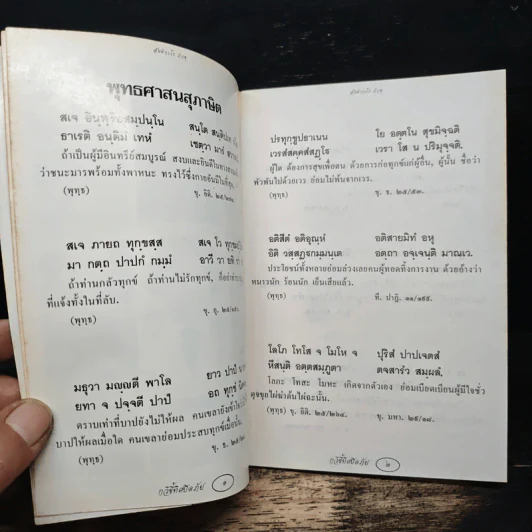 พุทธศาสนสุภาษิต
สเจ อินฺทฺริยสมฺปนฺโน
ธาเรติ อนฺติมํ เทหํ เชตฺวา มารํ
ถ้าเป็นผู้มีอินทรีย์สมบูรณ์ สงบและยินดีในทาง
ว่าชนะมารพร้อมทั้งพาหนะ ทรงไว้ซึ่งกายอันมีในที่สุด
(พุทฺธ)
สเจ ภายถ ทุกฺขสฺส สเจ โว
มา กตฺถ ปาปกํ กมฺมํ อาวี วา ยทิ
ถ้าท่านกลัวทุกข์ ถ้าท่านไม่รักทุกข์,
ที่แจ้งทั้งในที่ลับ.
(พุทฺธ) ขุ. อุ.
มธุวา มญฺญตี พาโล ยาว ปาปํ
ยทา จ ปจฺจตี ปาปํ อถ ทุกฺขํ
ตราบเท่าที่บาปยังไม่ให้ผล คนเขลายังเข้าใจ
บาปให้ผลเมื่อใด คนเขลาย่อมประสบทุกข์เมื่อนั้น.
(พุทฺธ) ขุ. ธ.
กวีชี้ทิศปิดภัย ๑
ปรทุกฺขูปธาเนน โย อตฺตโน สุขมิจฺฉติ
เวรสํสคฺคสํสฏฺโฐ เวรา โส น ปริมุจฺจติ.
ผู้ใด ต้องการสุขเพื่อตน ด้วยการก่อทุกข์แก่ผู้อื่น, ผู้นั้น ชื่อว่า
พัวพันไปด้วยเวร ย่อมไม่พ้นจากเวร.
(พุทฺธ) ขุ. ธ. ๒๕/๕๓.
อติสีตํ อติอุณฺหํ อติสายมิทํ อหุ
อิติ วิสฺสฏฺฐกมฺมนฺเต อตฺถา อจฺเจนฺติ มาณเว.
ประโยชน์ทั้งหลายย่อมล่วงเลยคนผู้ทอดทิ้งการงาน ด้วยอ้างว่า
หนาวนัก ร้อนนัก เย็นเสียแล้ว.
(พุทฺธ) ที. ปาฏิ. ๑๑/๑๙๙.
โลโภ โทโส จ โมโห จ ปุริสํ ปาปเจตสํ
หึสนฺติ อตฺตสมฺภูตา ตจสารํว สมฺผลํ.
โลภะ โทสะ โมหะ เกิดจากตัวเอง ย่อมเบียดเบียนผู้มีใจชั่ว
ดุจขุยไผ่ฆ่าต้นไผ่ฉะนั้น.
(พุทฺธ) ขุ. อิติ. ๒๕/๒๖๔. ขุ. มหา. ๒๙/๑๘.
กวีชี้ทิศปิดภัย ๒